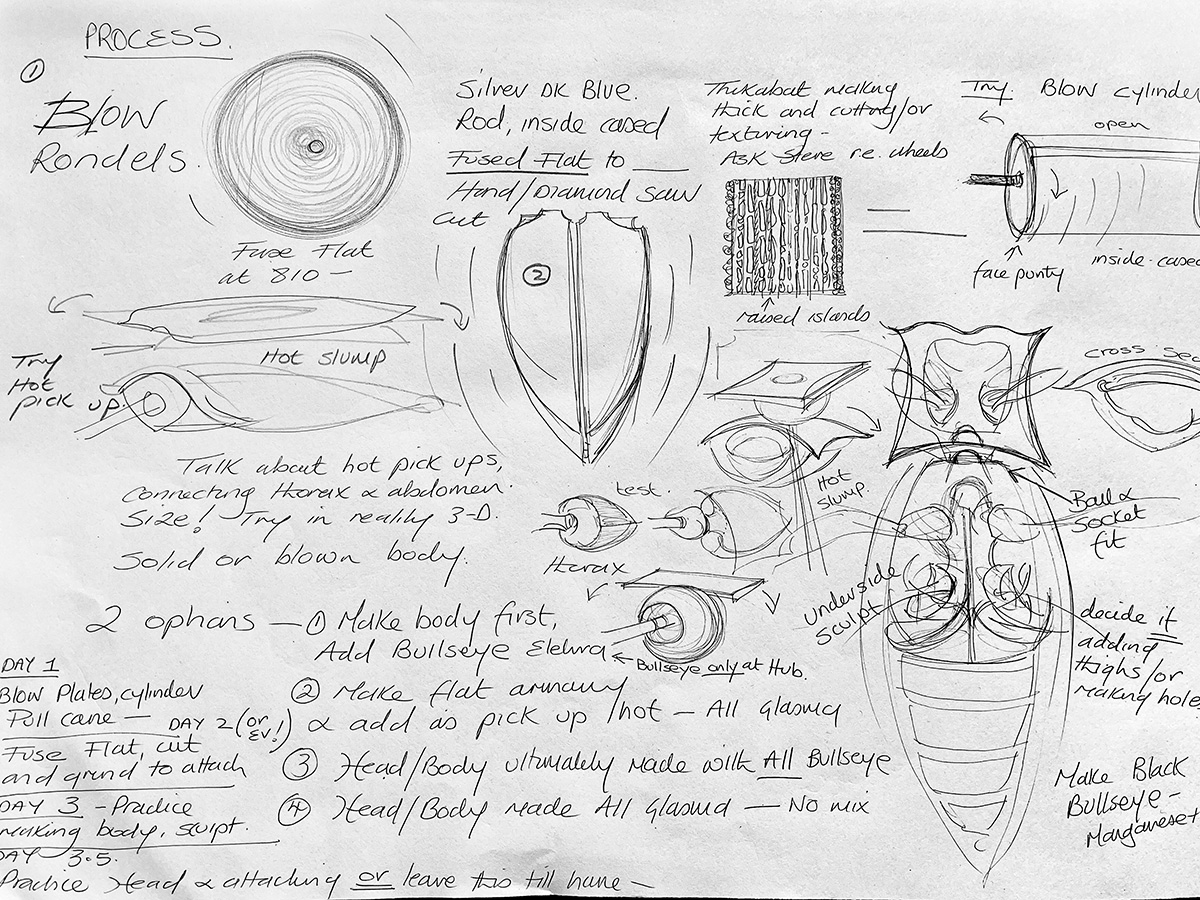 PROCESS.
①
Blow
Rondels.
Fuse Flat
at 810 –
Hot slump
Try
Hot
pick up.
Silver DK Blue.
Rod, inside cased
Fused Flat to
Hand/Diamond Saw
cut
②
Think about making
thick and cutting/or
texturing –
Ask Steve re. wheels
raised islands
Try. Blow cylinder
open
face punty
inside-cased
Cross Sec
Talk about hot pick ups,
connecting thorax & abdomen.
Size! Try in reality 3-D.
Solid or blown body.
test.
Thorax
Hot
slump.
Ball &
Socket
fit
underside
sculpt
decide if
adding
thighs/or
making holes
2 options – ① Make body first,
Add Bullseye Eletra
← Bullseye only at Hub.
② Make flat
& add as pick up /hot – All Glasma
③ Head/Body ultimately made with All Bullseye
④ Head/Body made All Glasma – No mix
DAY 1
Blow Plates, cylinder
Pull cane –
DAY 2 (or EV!)
Fuse Flat, cut
and grind to attach
DAY 3 – Practice
making body, sculpt.
DAY 3.5.
Practice Head & attaching or leave this till home –
Make Black
Bullseye –
Manganese +